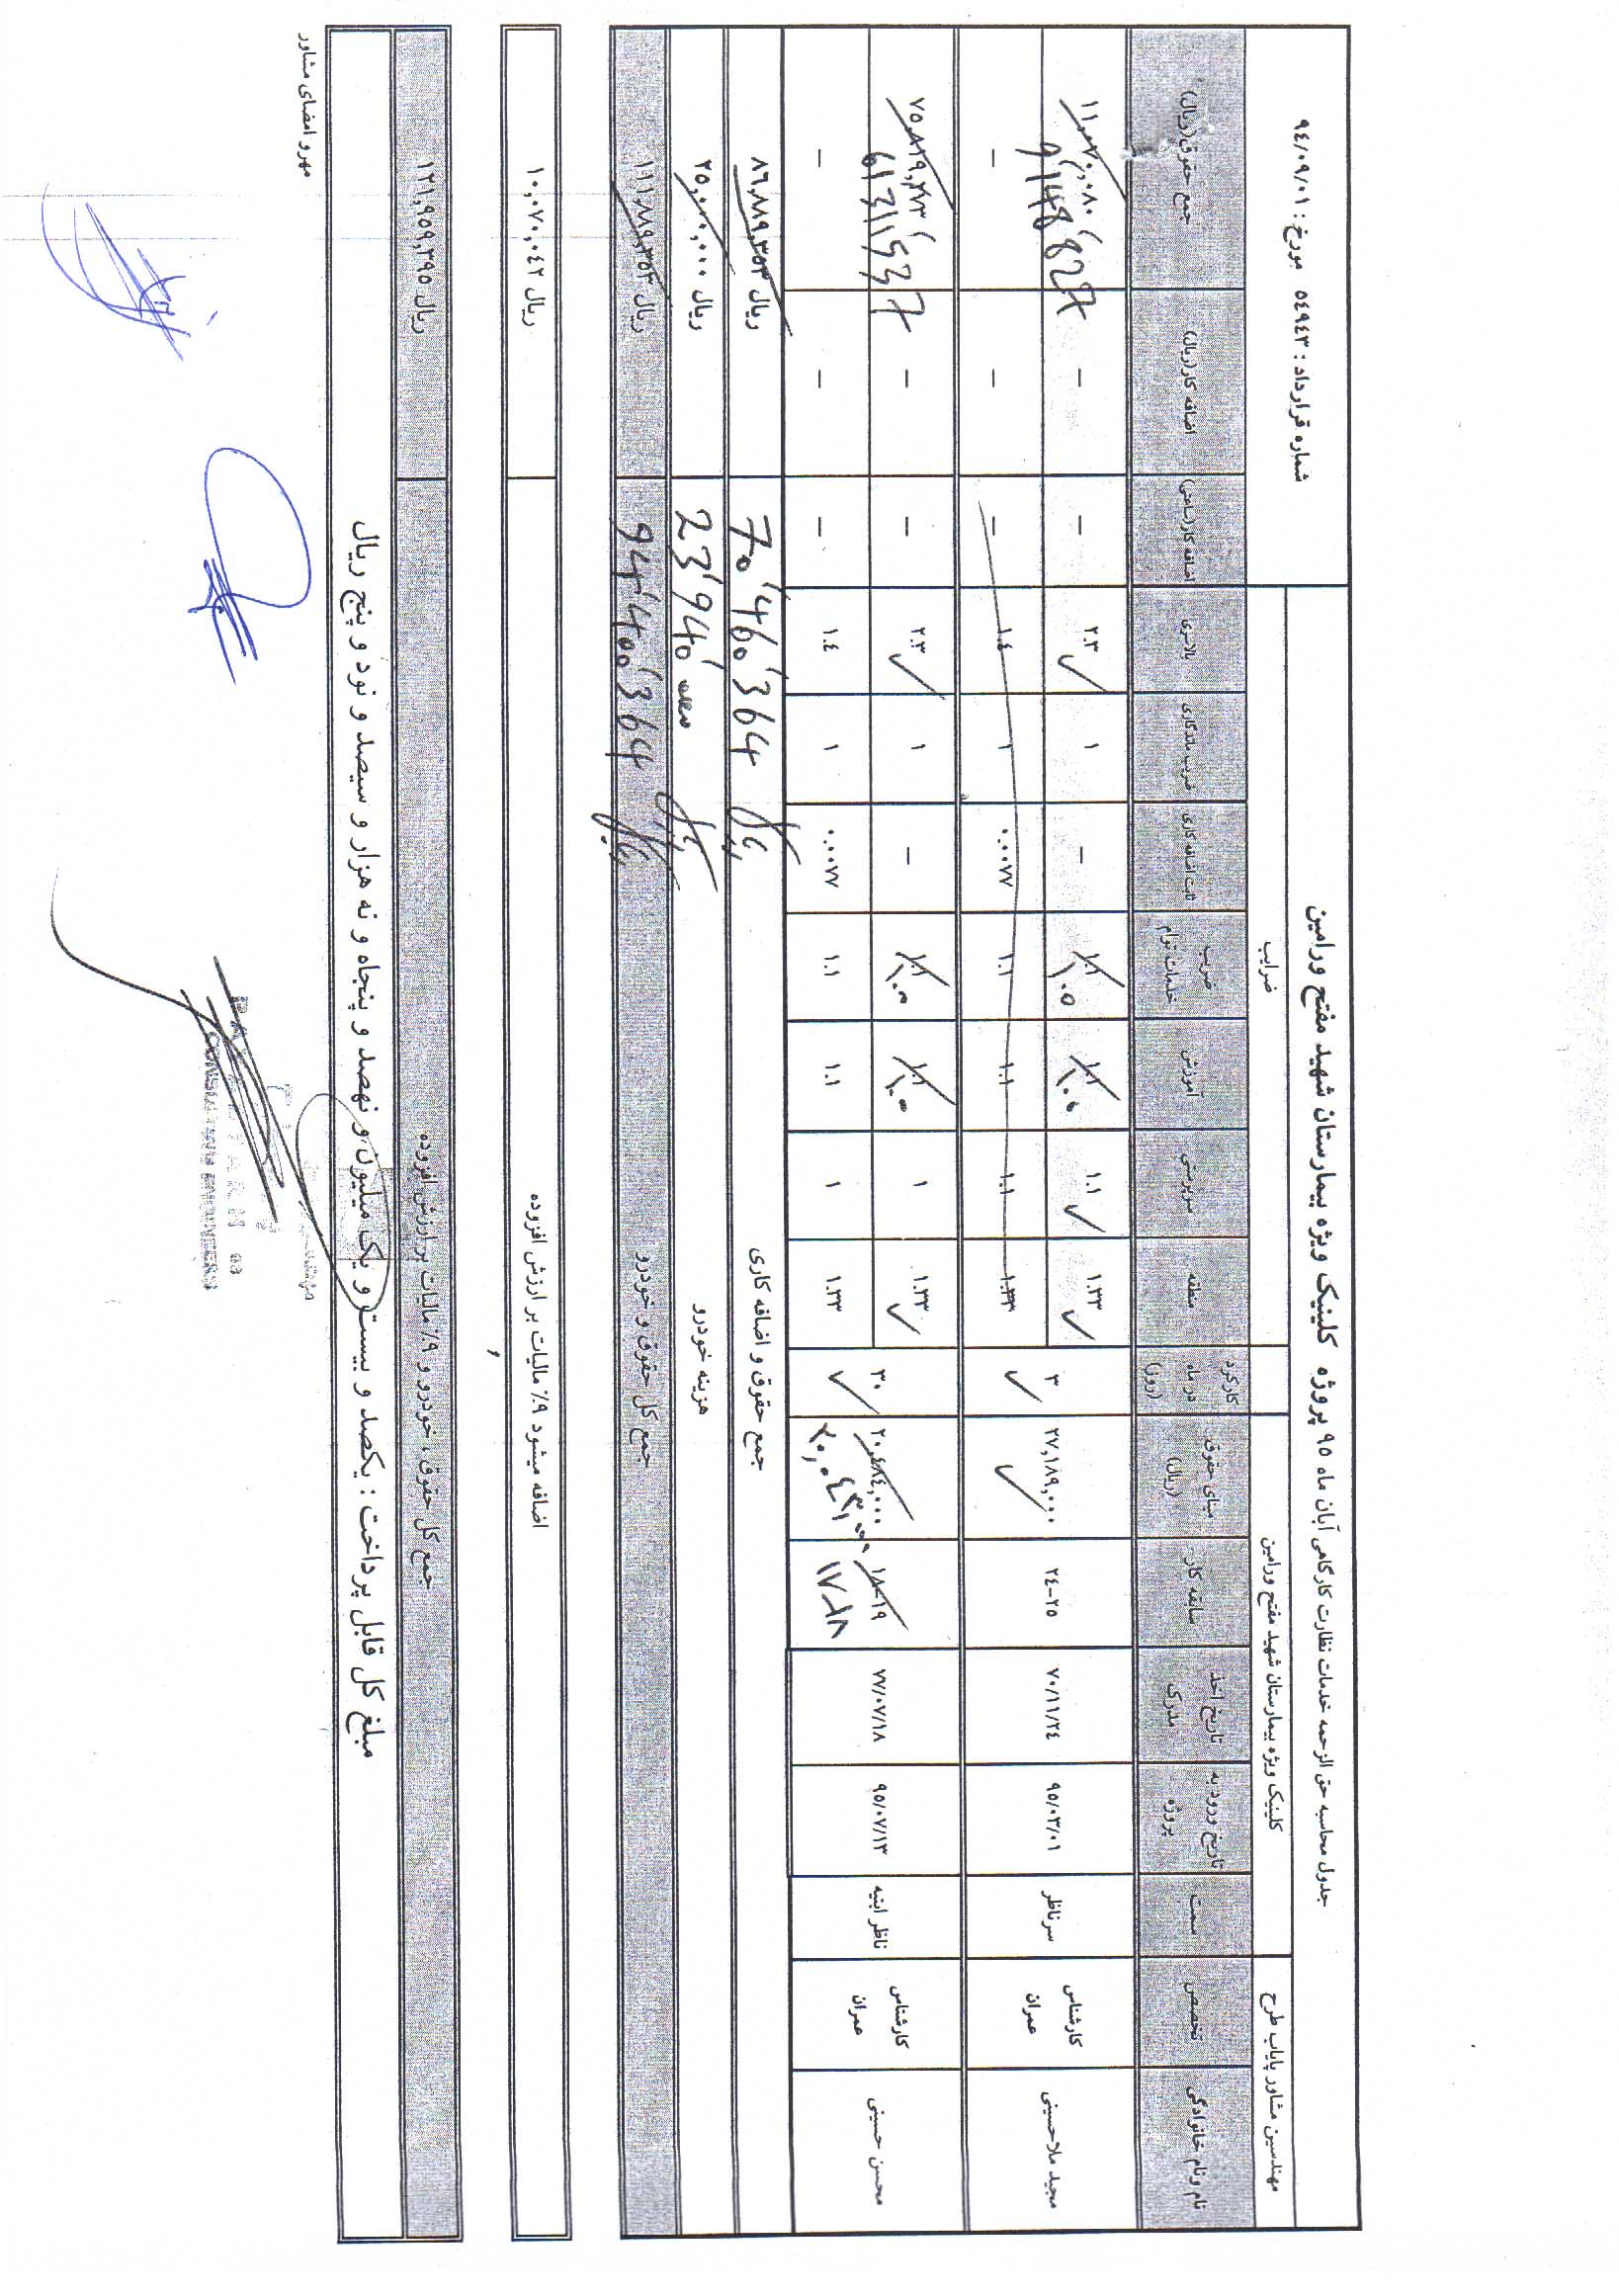 جدول محاسبه حق الزحمه خدمات نظارت کارگاهی آبان ماه ۹۵ پروژه کلینیک ویژه بیمارستان شهید مفتح ورامین
شماره قرارداد : ۵٤۹٤۳ مورخ : ۹٤/۰۹/۰۱
مهندسین مشاور پایاب طرح
کلینیک ویژه بیمارستان شهید مفتح ورامین
ضرایب
نام ونام خانوادگی
تخصص
سمت
تاریخ ورود به پروژه
تاریخ اخذ مدرک
سابقه کار
مبنای حقوق (ریال)
کارکرد در ماه (روز)
منطقه
سرپرستی
آموزش
ضریب خدمات توام
ثابت اضافه کاری
ضریب ماندگاری
بالاسری
اضافه کار (ساعتی)
اضافه کار (ریال)
جمع حقوق (ریال)
مجید ملاحسینی
کارشناس عمران
سرناظر
۹۵/۰۳/۰۱
۷۰/۱۱/۲٤
۲٤-۲۵
۲۷,۱۸۹,۰۰۰
۳
۱.۳۳ ۱.۱ ۱.۱ ۱.۰۰ ۱.۱ ۱.۰۵ - ۱ ۲.۳ - - ۱۱,۰۷۰,۰۸۰ 9'148'827
۱.۳۳ ۱.۱ ۱.۱ ۱.۱ ۰.۰۰۷۷ ۱ ۱.٤ - - -
محسن حسینی
کارشناس عمران
ناظر ابنیه
۹۵/۰۷/۱۳
۷۷/۰۷/۱۸
۱۸-۱۹
۱۷-۱۸
۲۰,٤۸٤,۰۰۰
۳۰
۱.۳۳ ۱ ۱.۱ ۱.۰۰ ۱.۱ ۱.۰۰ - ۱ ۲.۳ - - ۷۵,۸۱۹,۲۷۳ 61'311'537
۱.۳۳ ۱ ۱.۱ ۱.۱ ۰.۰۰۷۷ ۱ ۱.٤ - - -
جمع حقوق و اضافه کاری 70'460'364 ریال ۸٦,۸۸۹,۳۵۳ ریال
هزینه خودرو 23'940'000 ریال ۲۵,۰۰۰,۰۰۰ ریال
جمع کل حقوق و خودرو 94'400'364 ریال ۱۱۱,۸۸۹,۳۵۳ ریال
اضافه میشود ۹٪ مالیات بر ارزش افزوده ۱۰,۰۷۰,۰٤۲ ریال
جمع کل حقوق، خودرو و ۹٪ مالیات بر ارزش افزوده ۱۲۱,۹۵۹,۳۹۵ ریال
مبلغ کل قابل پرداخت : یکصد و بیست و یک میلیون و نهصد و پنجاه و نه هزار و سیصد و نود و پنج ریال
مهر و امضای مشاور
CONSULTING ENGINEERS